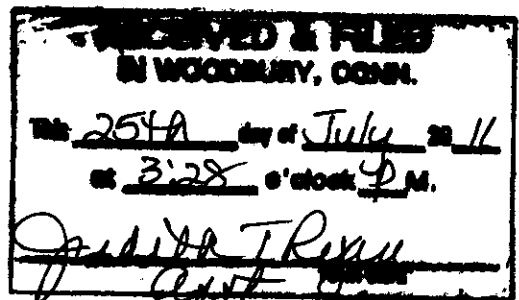 RECEIVED & FILED
IN WOODBURY, CONN.
This 25th day of July 20 11
at 3:28 o'clock P M.
Judith T
Asst